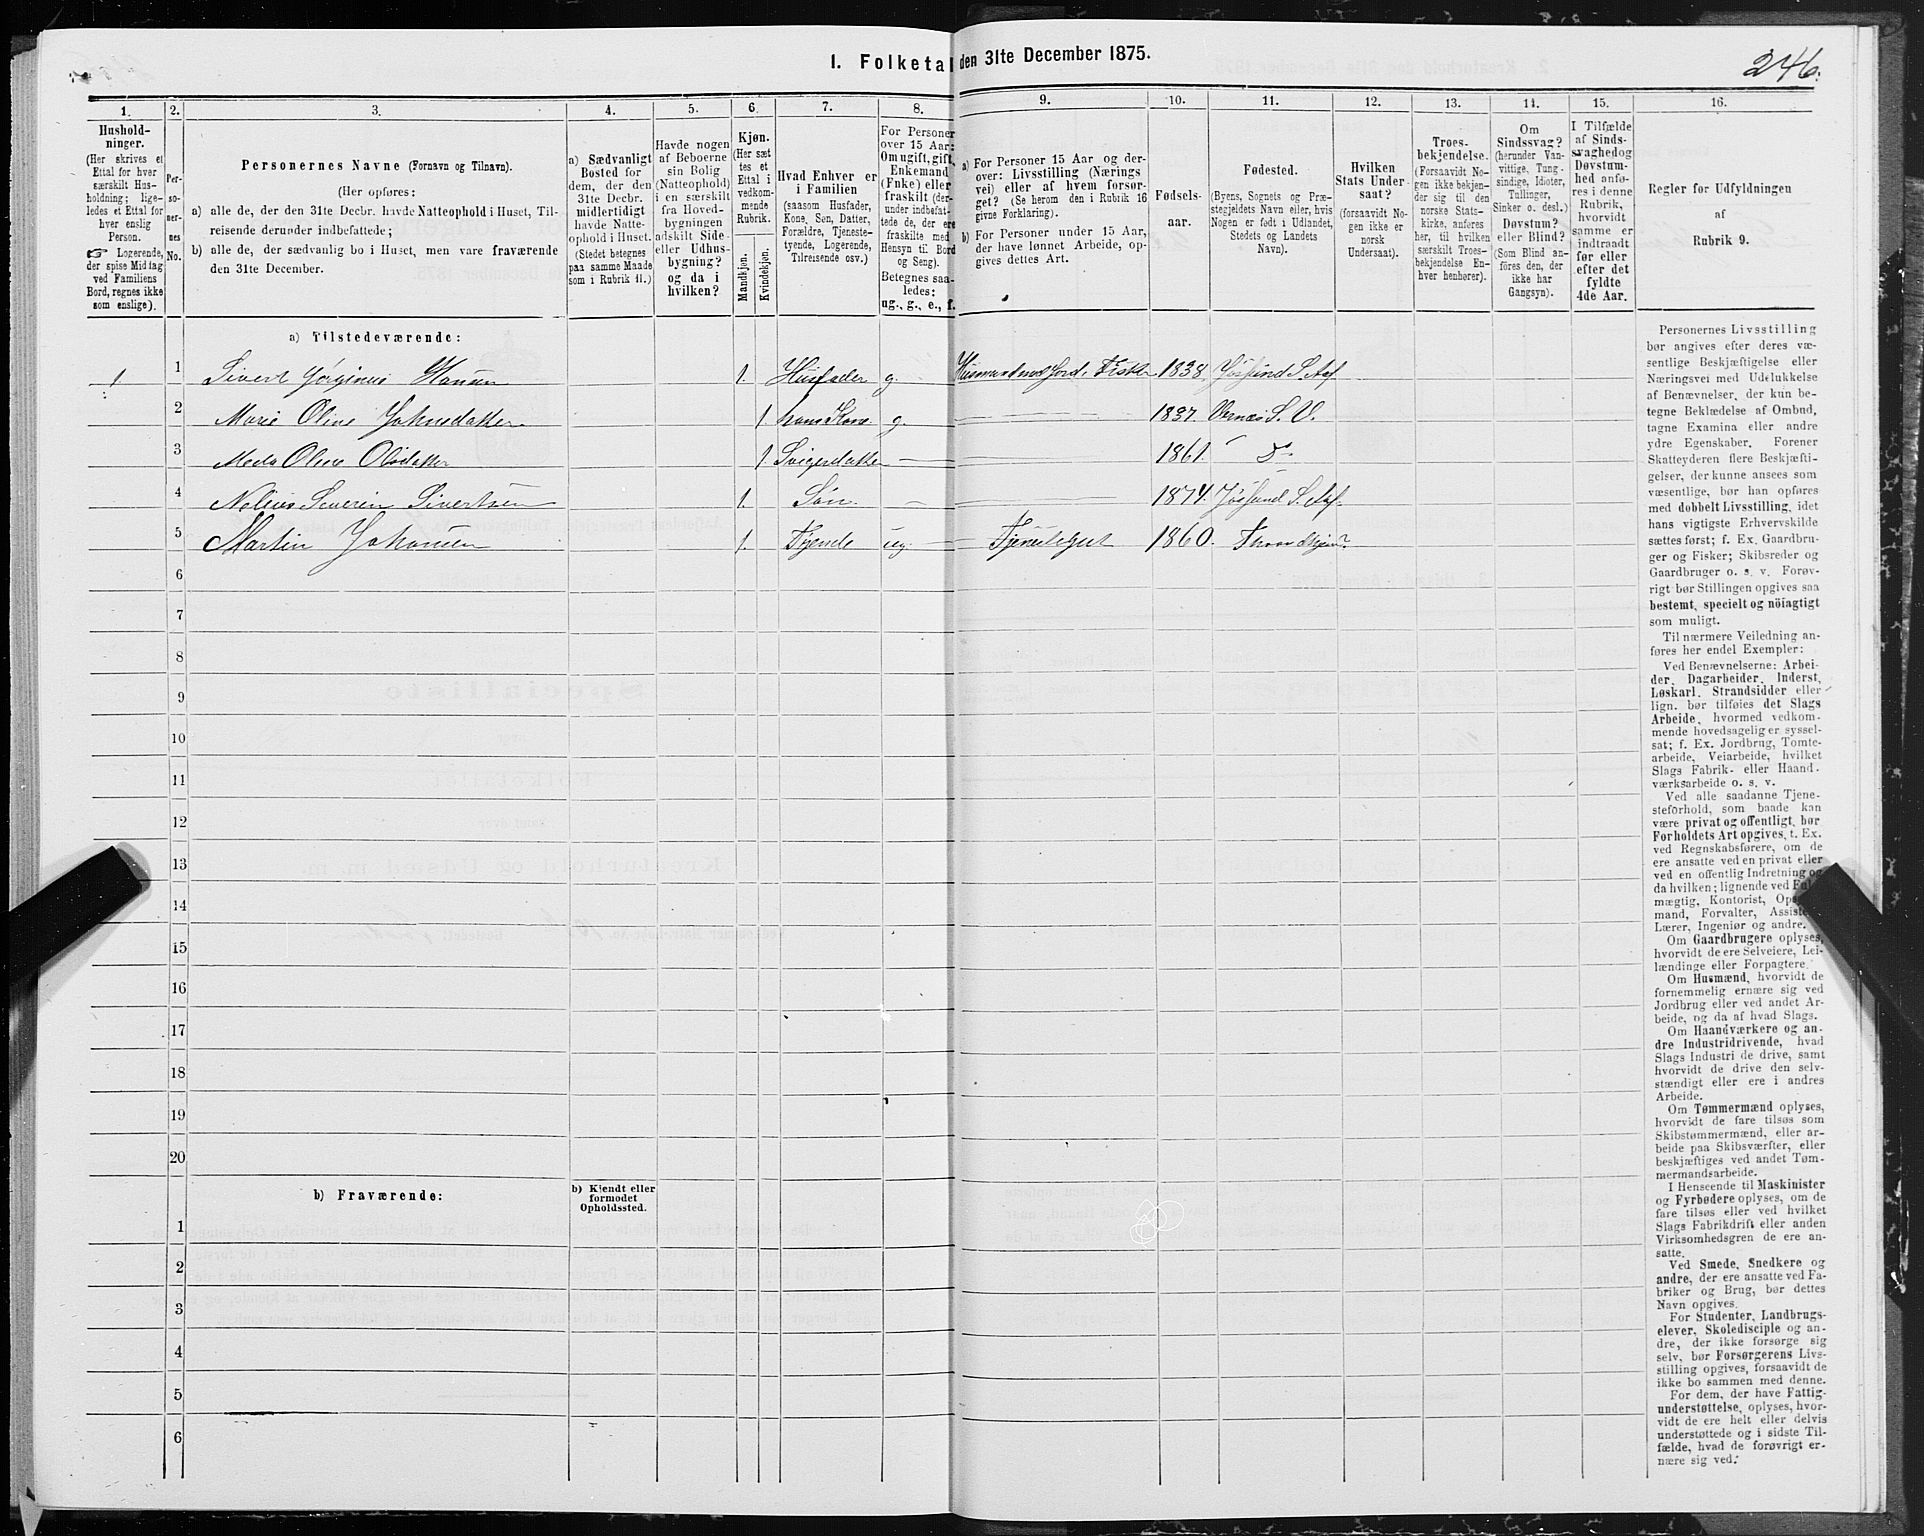 I. Folketal den 31te December 1875.
246.
1. 2. 3. 4. 5. 6. 7. 8. 9. 10. 11. 12. 13. 14. 15. 16.
Hushold-
ninger.
(Her skrives et
Ettal for hver
særskilt Hus-
holdning; lige-
ledes et Ettal for
hver enslig
Person.
☞ Logerende,
der spise Middag
ved Familiens
Bord, regnes ikke
som enslige).
Per-
so-
ner-
nes
No.
Personernes Navne (Fornavn og Tilnavn).
(Her opføres:
a) alle de, der den 31te Decbr. havde Natteophold i Huset, Til-
reisende derunder indbefattede;
b) alle de, der sædvanlig bo i Huset, men vare fraværende
den 31te December.
a) Sædvanligt
Bosted for
dem, der den
31te Decbr.
midlertidigt
havde Natte-
ophold i Huset.
(Stedet betegnes
paa samme Maade
som i Rubrik 11.)
Havde nogen
af Beboerne
sin Bolig
(Natteophold)
i en særskilt
fra Hoved-
bygningen
adskilt Side-
eller Udhus-
bygning?
og da i
hvilken?
Kjøn.
(Her sæt
tes et
Ettal i
vedkom-
mende
Rubrik.
Mandkjøn.
Kvindekjøn.
Hvad Enhver er
i Familien
(saasom Husfader,
Kone, Søn, Datter,
Forældre, Tjeneste-
tyende, Logerende,
Tilreisende osv.)
For Personer
over 15 Aar:
Om ugift, gift,
Enkemand
(Enke) eller
fraskilt (der-
under indbefat-
tede de, der ere
fraskilte med
Hensyn til Bord
og Seng).
Betegnes saa-
ledes:
ug., g., e., f.
a) For Personer 15 Aar og der-
over: Livsstilling (Nærings
vei) eller af hvem forsør-
get? (Se herom den i Rubrik 16
givne Forklaring).
b) For Personer under 15 Aar,
der have lønnet Arbeide, op-
gives dettes Art.
Fødsels-
aar.
Fødested.
(Byens, Sognets og Præ-
stegjeldets Navn eller, hvis
Nogen er født i Udlandet,
Stedets og Landets
Navn).
Hvilken
Stats Under
saat?
(forsaavidt No-
gen ikke er
norsk
Undersaat).
Troes-
bekjendelse.
(Forsaavidt No-
gen ikke bekjen-
der sig til den
norske Stats-
kirke, anføres
her, til hvilken
særskilt Troes-
bekjendelse En-
hver henhører).
Om
Sindssvag?
(herunder Van-
vittige, Tung-
sindige, Idioter,
Tullinger,
Sinker o. desl.)
Døvstum?
eller Blind?
(Som Blind an-
føres den, der
ikke har
Gangsyn).
I Tilfælde
af Sinds-
svaghed og
Døvstum-
hed anfø-
res i denne
Rubrik,
hvorvidt
samme er
indtraadt
før eller
efter det
fyldte
4de Aar.
Regler før Udfyldningen
af
Rubrik 9.
a) Tilstedeværende:
1 1 Sivert Jørginus Hansen 1. Husfader g. Husmand med Jord. Fisker 1838. Jøssund S. Aaf
2 Marie Oline Johnsdatter 1. hans Kone g. 1837. Vernæs S. V.
3 Oline Olsdatter 1 Svigerdatter 1861. Do
4 Severin Sivertsen 1. Søn. 1874. Jøssund S. Aaf.
5 Martin Johansen 1. Tjende ug. Tjenestegut 1860. Throndhjem.
6
7
8
9
10
11
12
13
14
15
16
17
18
19
20
b) Fraværende:
b) Kjendt eller
formodet
Opholdssted.
1
2
3
4
5
6
Personernes Livsstilling
bør angives efter deres væ-
sentlige Beskjæftigelse eller
Næringsvei med Udelukkelse
af Benævnelser, der kun be-
tegne Beklædelse af Ombud,
tagne Examina eller andre
ydre Egenskaber. Forener
Skatteyderen flere Beskjæfti-
gelser, der kunne ansees som
væsentlige, bør han opføres
med dobbelt Livsstilling, idet
hans vigtigste Erhvervskilde
sættes først; f. Ex. Gaardbru-
ger og Fisker; Skibsreder og
Gaardbruger o. s. v. Forøv-
rigt bør Stillingen opgives saa
bestemt, specielt og nöiagtigt
som muligt.
Til nærmere Veiledning an-
føres her endel Exempler:
Ved Benævnelserne: Arbei-
der, Dagarbeider, Inderst,
Løskarl, Strandsidder eller
lign. bør tilføies det Slags
Arbeide, hvormed vedkom-
mende hovedsagelig er syssel-
sat; f. Ex. Jordbrug, Tomte-
arbeide, Veiarbeide, hvilket
Slags Fabrik- eller Haand-
værksarbeide o. s. v.
Ved alle saadanne Tjene-
steforhold, som baade kan
være privat og offentligt, bør
Forholdets Art opgives, t. Ex.
ved Regnskabsførere, om de
ere ansatte ved en privat eller
ved en offentlig Indretning og
da hvilken; lignende ved Fuld-
mægtig, Kontorist, Opsyns-
mand, Forvalter, Assistent,
Lærer, Ingeniør og andre.
Om Gaardbrugere oplyses,
hvorvidt de ere Selveiere, Lei-
lændinge eller Forpagtere.
Om Husmænd, hvorvidt de
fornemmelig ernære sig ved
Jordbrug eller ved andet Ar-
beide, og da af hvad Slags.
Om Haandværkere og an-
dre Industridrivende, hvad
Slags Industri de drive, samt
hvorvidt de drive den selv-
stændigt eller ere i andres
Arbeide.
Om Tømmermænd oplyses,
hvorvidt de fare tilsøs som
Skibstømmermænd, eller ar-
beide paa Skibsværfter, eller
beskjæftiges ved andet Tøm-
mermandsarbeide.
I Henseende til Maskinister
og Fyrbødere oplyses, om de
fare tilsøs eller ved hvilket
Slags Fabrikdrift eller anden
Virksomhedsgren de ere an-
satte.
Ved Smede, Snedkere og
andre, der ere ansatte ved Fa-
briker og Brug, bør dettes
Navn opgives.
For Studenter, Landbrugs-
elever, Skoledisciple og an-
dre, der ikke forsørge sig
selv, bør Forsørgerens Livs-
stilling opgives, forsaavidt de
ikke bo sammen med denne.
For dem, der have Fattig-
understøttelse, oplyses, hvor-
vidt de ere helt eller delvis
understøttede og i sidste Til-
fælde, hvad de forøvrigt er-
nære sig ved.